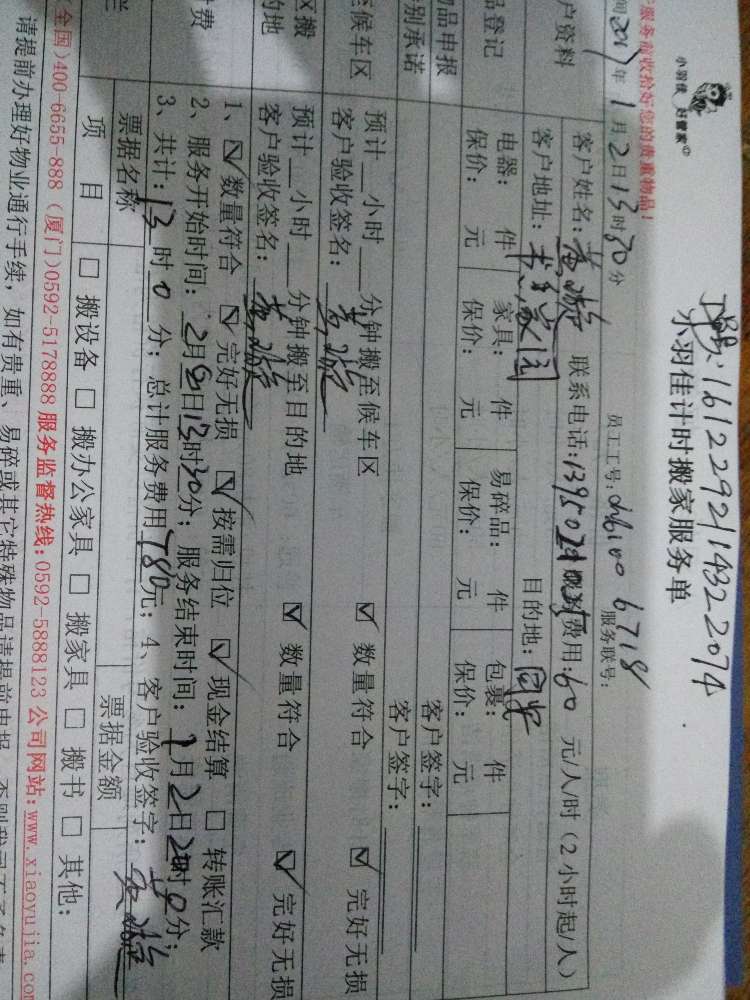 16122921432 2074
小羽佳计时搬家服务单
小羽佳 好管家
服务前收拾好您的贵重物品!
间2017年1月2日13时30分
员工工号:
6718
服务联号:
户资料
客户姓名:
联系电话:
服务费用:60元/人/时(2小时起/人)
客户地址:
目的地:同安
品登记
电器: 件 家具: 件 易碎品: 件 包裹: 件
保价: 元 保价: 元 保价: 元 保价: 元
物品申报
客户签字:
别承诺
客户签字:
至候车区
预计__小时__分钟搬至候车区
☑ 数量符合 ☑ 完好无损
客户验收签名:
区搬
的地
预计__小时__分钟搬至目的地
☑ 数量符合 ☑ 完好无损
客户验收签名:
付费
1、☑ 数量符合 ☑ 完好无损 ☑ 按需归位 ☑ 现金结算 □ 转账汇款
2、服务开始时间:2日13时30分;服务结束时间:1月2日
3、共计:13时0分;总计服务费用780元;4、客户验收签字:
票据名称
票据金额
项 目
□ 搬设备 □ 搬办公家具 □ 搬家具 □ 搬书 □ 其他:
全国)400-6655-888 (厦门)0592-5178888 服务监督热线:0592-5888123 公司网站:www.xiaoyujia.com
请提前办理好物业通行手续,如有贵重、易碎或其它特殊物品请提前申报,否则我司不予负责